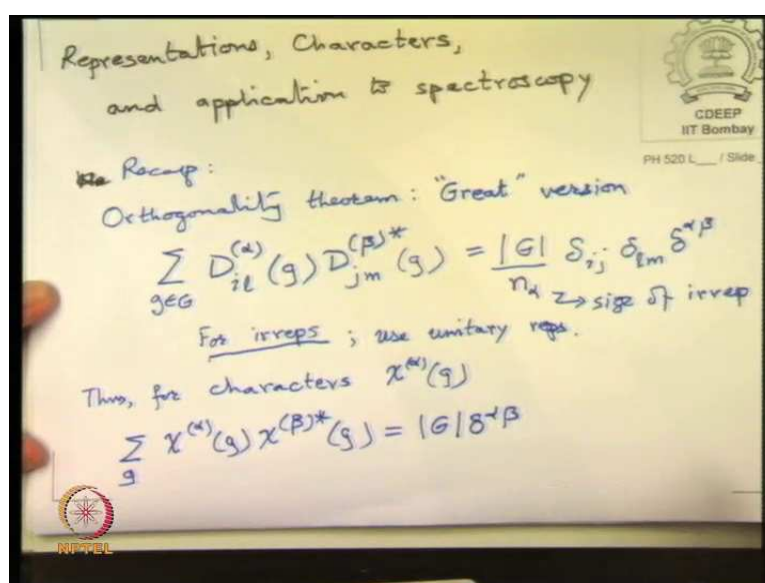 Representations, Characters,
and application to spectroscopy
CDEEP
IIT Bombay
PH 520 L___ / Slide
Recap:
Orthogonality theorem: "Great" version
∑_{g∈G} D_{il}^{(α)}(g) D_{jm}^{(β)*}(g) = |G|/n_α δ_{ij} δ_{lm} δ^{αβ}
↳ size of irrep
For irreps ; use unitary reps.
Thus, for characters χ^{(α)}(g)
∑_g χ^{(α)}(g) χ^{(β)*}(g) = |G| δ^{αβ}
NPTEL